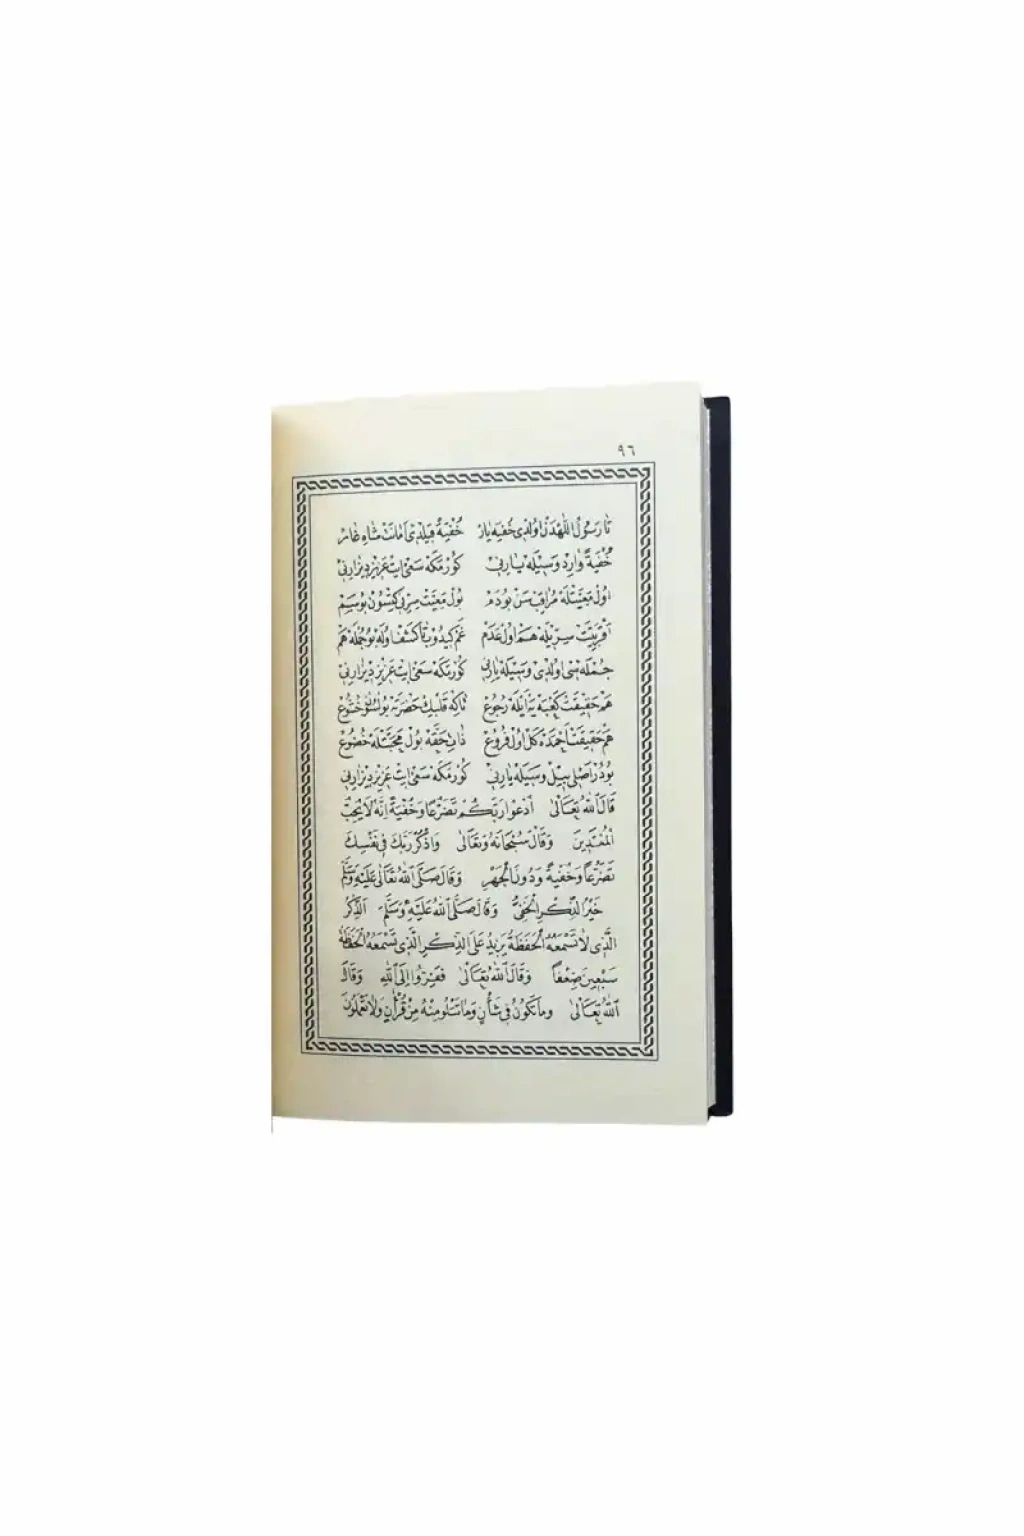 ٩٦
تَا رَسُولُ اللّٰهْدَنْ اُولْدِى خُفْيَه يَارْ خُفْيَةً قِيلْدِى اَمَانَتْ شَاهِ غَارْ
خُفْيَةً وَارِدْ وَسِيلَه يَا رَبِّى كُورْمَكَه سَعْىْ اِيتْ عَزِيزِ دِيدَارِنِى
اُولْ مَعِيَّتْلَه مُرَاقِبْ سَنْ بُودَمْ بُولْ مَعِيَّتْ سِرِّنِى
اَقْرَبِيَّتْ سِرِّيلَه هَمْ اُولْ عَدَمْ غَمْ كِيدُوبْ تَا كَشْفْ اُولَه بُو جُمْلَه هَمْ
جُمْلَه سِى اُولْدِى وَسِيلَه يَا رَبِّى كُورْمَكَه سَعْىْ اِيتْ عَزِيزِ دِيدَارِنِى
هَمْ حَقِيقَتْ كَعْبَه يَه اَيْلَه رُجُوعْ تَا كِه قَلْبِكْ حَضْرَتَه بُولْسُونْ خُشُوعْ
هَمْ حَقِيقَتْ اَحْمَدَه كَلْ اُولْ فُرُوعْ ذَاتِ حَقَّه بُولْ مَحَبَّتْلَه خُضُوعْ
بُودُرْ اَصْلِى بِيلْ وَسِيلَه يَا رَبِّى كُورْمَكَه سَعْىْ اِيتْ عَزِيزِ دِيدَارِنِى
قَالَ اللّٰهُ تَعَالٰى اُدْعُوا رَبَّكُمْ تَضَرُّعًا وَخُفْيَةً اِنَّهُ لَا يُحِبُّ
الْمُعْتَدِينَ وَقَالَ سُبْحَانَهُ وَتَعَالٰى وَاذْكُرْ رَبَّكَ فِى نَفْسِكَ
تَضَرُّعًا وَخُفْيَةً وَدُونَ الْجَهْرِ وَقَالَ صَلَّى اللّٰهُ تَعَالٰى عَلَيْهِ وَسَلَّمَ
خَيْرُ الذِّكْرِ الْخَفِىُّ وَقَالَ صَلَّى اللّٰهُ عَلَيْهِ وَسَلَّمَ اَلذِّكْرُ
الَّذِى لَا تَسْمَعُهُ الْحَفَظَةُ يَزِيدُ عَلَى الذِّكْرِ الَّذِى تَسْمَعُهُ الْحَفَظَةُ
سَبْعِينَ ضِعْفًا وَقَالَ اللّٰهُ تَعَالٰى فَفِرُّوا اِلَى اللّٰهِ وَقَالَ
اللّٰهُ تَعَالٰى وَمَا تَكُونُ فِى شَأْنٍ وَمَا تَتْلُو مِنْهُ مِنْ قُرْاٰنٍ وَلَا تَعْمَلُونَ